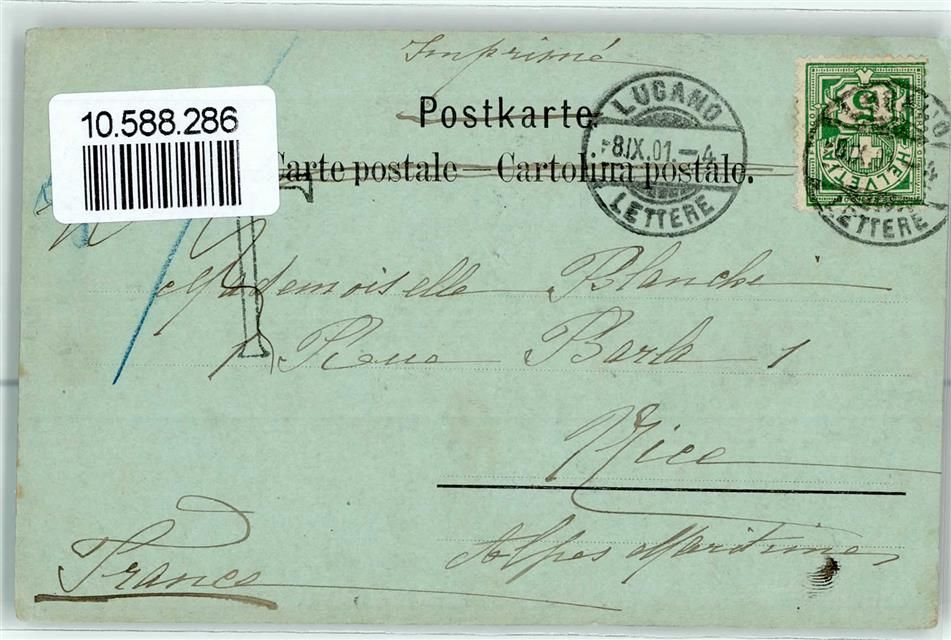 Imprimé
10.588.286
Postkarte.
Carte postale — Cartolina postale.
LUGANO
8.IX.01.-4
LETTERE
5
HELVETIA
LETTERE
T
Mademoiselle Blanche
1 Rue Barla 1
Nice
Alpes Maritimes
France